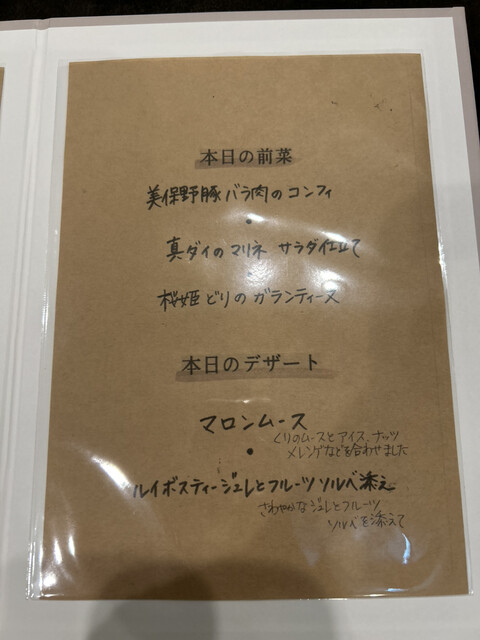 本日の前菜
美保野豚バラ肉のコンフィ
•
真ダイのマリネ サラダ仕立て
•
桜姫どりのガランティーヌ
本日のデザート
マロンムース
くりのムースとアイス、ナッツ
メレンゲなどを合わせました
•
ルイボスティージュレとフルーツ ソルベ添え
さわやかなジュレとフルーツ
ソルベを添えて